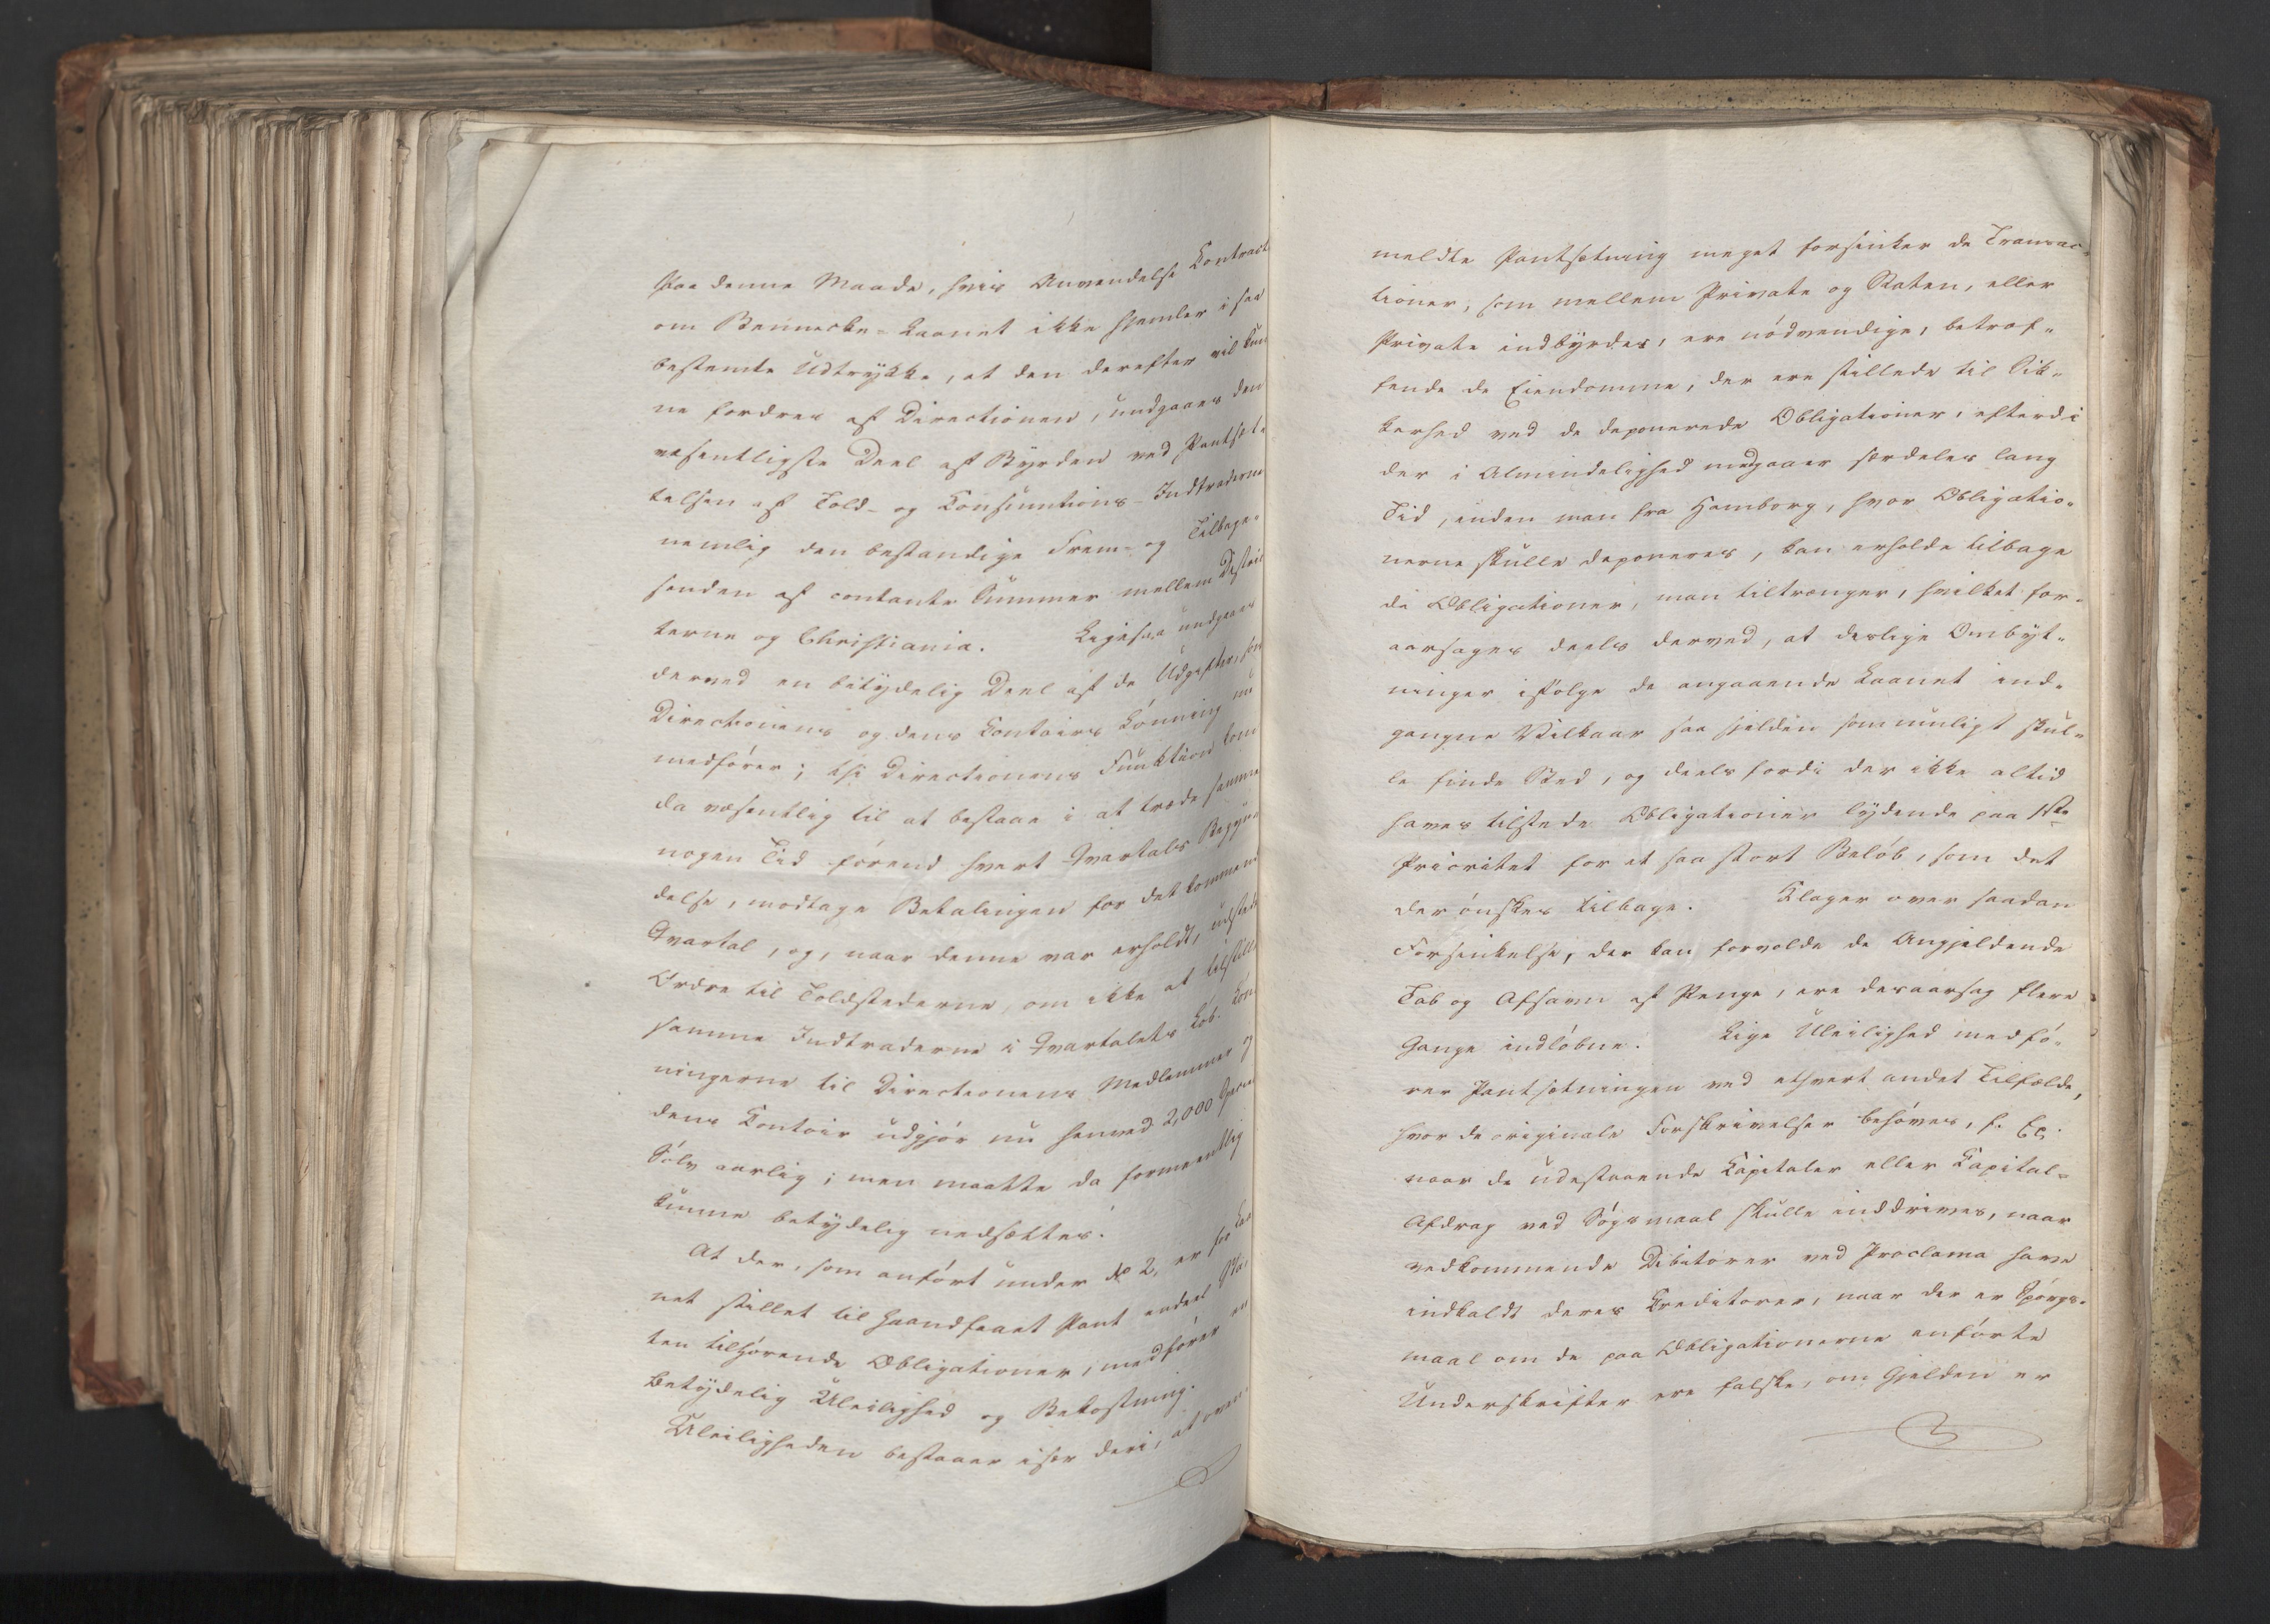 Paa denne Maade, hvis Anvendelse Contract
om Benneche-Laanet ikke hjemler i saa
bestemte Udtrykke, at den derefter vil kun
ne fordres af Directionen, undgaaes den
væsentligste Deel af Byrden ved Pantsæt-
telsen af Told- og Consumtions-Indtraderne
nemlig den bestandige Frem- og Tilbage-
senden af contante Summer mellem Distric
terne og Christiania. Ligesaa undgaaes
derved en betydelig Deel af de Udgifter, som
Directionens og dens Contoirs Lønning nu
medfører; thi Directionens Funktion kom
da væsentlig til at bestaae i at træde sammen
nogen Tid førend hvert Qvartals Begyn
delse, modtage Betalingen for det kommende
Qvartal, og, naar denne var erholdt, udstede
Ordre til Toldstederne, om ikke at tilstille
samme Indtraderne i Qvartalets Løb. Løn
ningerne til Directionens Medlemmer og
dens Contoir udgjør nu henved 2,000 Species
Sølv aarlig; men maatte da formeentlig
kunne betydelig nedsættes.
At der, som anført under No 2, er for Laa
net stillet til haandfaaet Pant endeel Sta-
ten tilhørende Obligationer, medfører en
betydelig Uleilighed og Bekostning.
Uleiligheden bestaaer især deri, at oven-
meldte Pantsætning meget forsinker de Transac-
tioner, som mellem Private og Staten, eller
Private indbyrdes, ere nødvendige, betræf-
fende de Eiendomme, der ere stillede til Sik-
kerhed ved de deponerede Obligationer, efterdi
der i Almindelighed medgaaer særdeles lang
Tid, inden man fra Hamborg, hvor Obligatio-
nerne skulle deponeres, kan erholde tilbage
de Obligationer, man tiltrænger, hvilket for-
aarsages deels derved, at deslige Ombyt-
ninger ifølge de angaaende Laanet ind-
gangne Vilkaar saa sjelden som muligt skul-
le finde Sted, og deels fordi der ikke altid
haves tilstede Obligationer lydende paa 1ste
Prioritet for et saa stort Beløb, som det
der ønskes tilbage. Klager over saadan
Forsinkelse, der kan forvolde de Angjeldende
Tab og Afsavn af Penge, ere desaarsag flere
Gange indløbne. Lige Uleilighed medfø-
rer Pantsætningen ved ethvert andet Tilfælde,
hvor de originale Forskrivelser behøves, f. Ex.
naar de udestaaende Capitaler eller Capital-
Afdrag ved Søgsmaal skulle inddrives, naar
vedkommende Debitorer ved Proclama have
indkaldt deres Creditorer, naar der er Spørgs-
maal om de paa Obligationerne anførte
Underskrifter ere falske, om Gjelden er